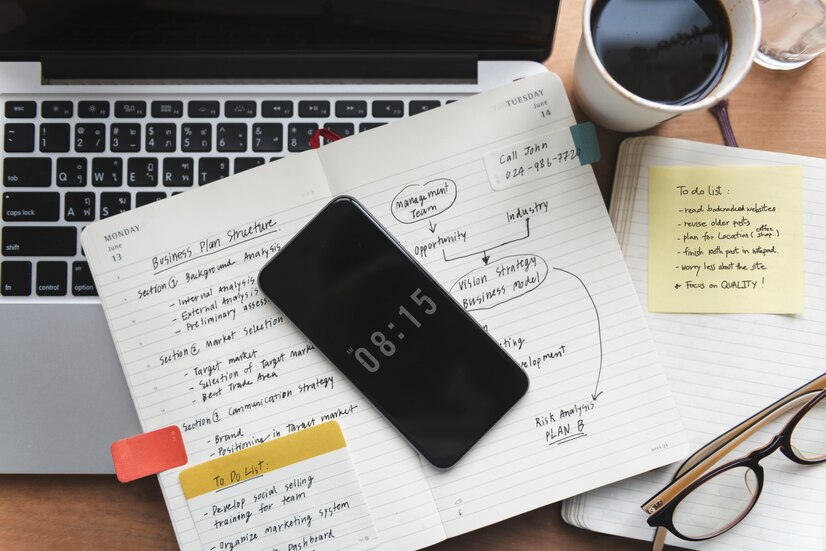 esc
tab
caps lock
shift
fn
control
option
MONDAY
June
13
Business Plan Structure
Section ① Background Analysis
- Internal Analysis
- External Analysis
- Preliminary assess
Section ② Market Selection
- Target market
- Selection of Target Marke
- Best Trade Area
Section ③ Communication Strategy
- Brand
- Positioning in Target market
To Do List:
- Develop social selling
training for team
- Organize Marketing system
Dashboard
08:15
TUESDAY
June
14
Call John
024-986-7720
Management
Team
Industry
Opportunity
Vision Strategy
Business Model
eting
velopment
Risk Analysis
PLAN B
To do list :
- read bookmarked websites
- revise older posts
- plan for Location (coffee shop.)
- finish 10th post in notepad.
- worry less about the site
* Focus on QUALITY !